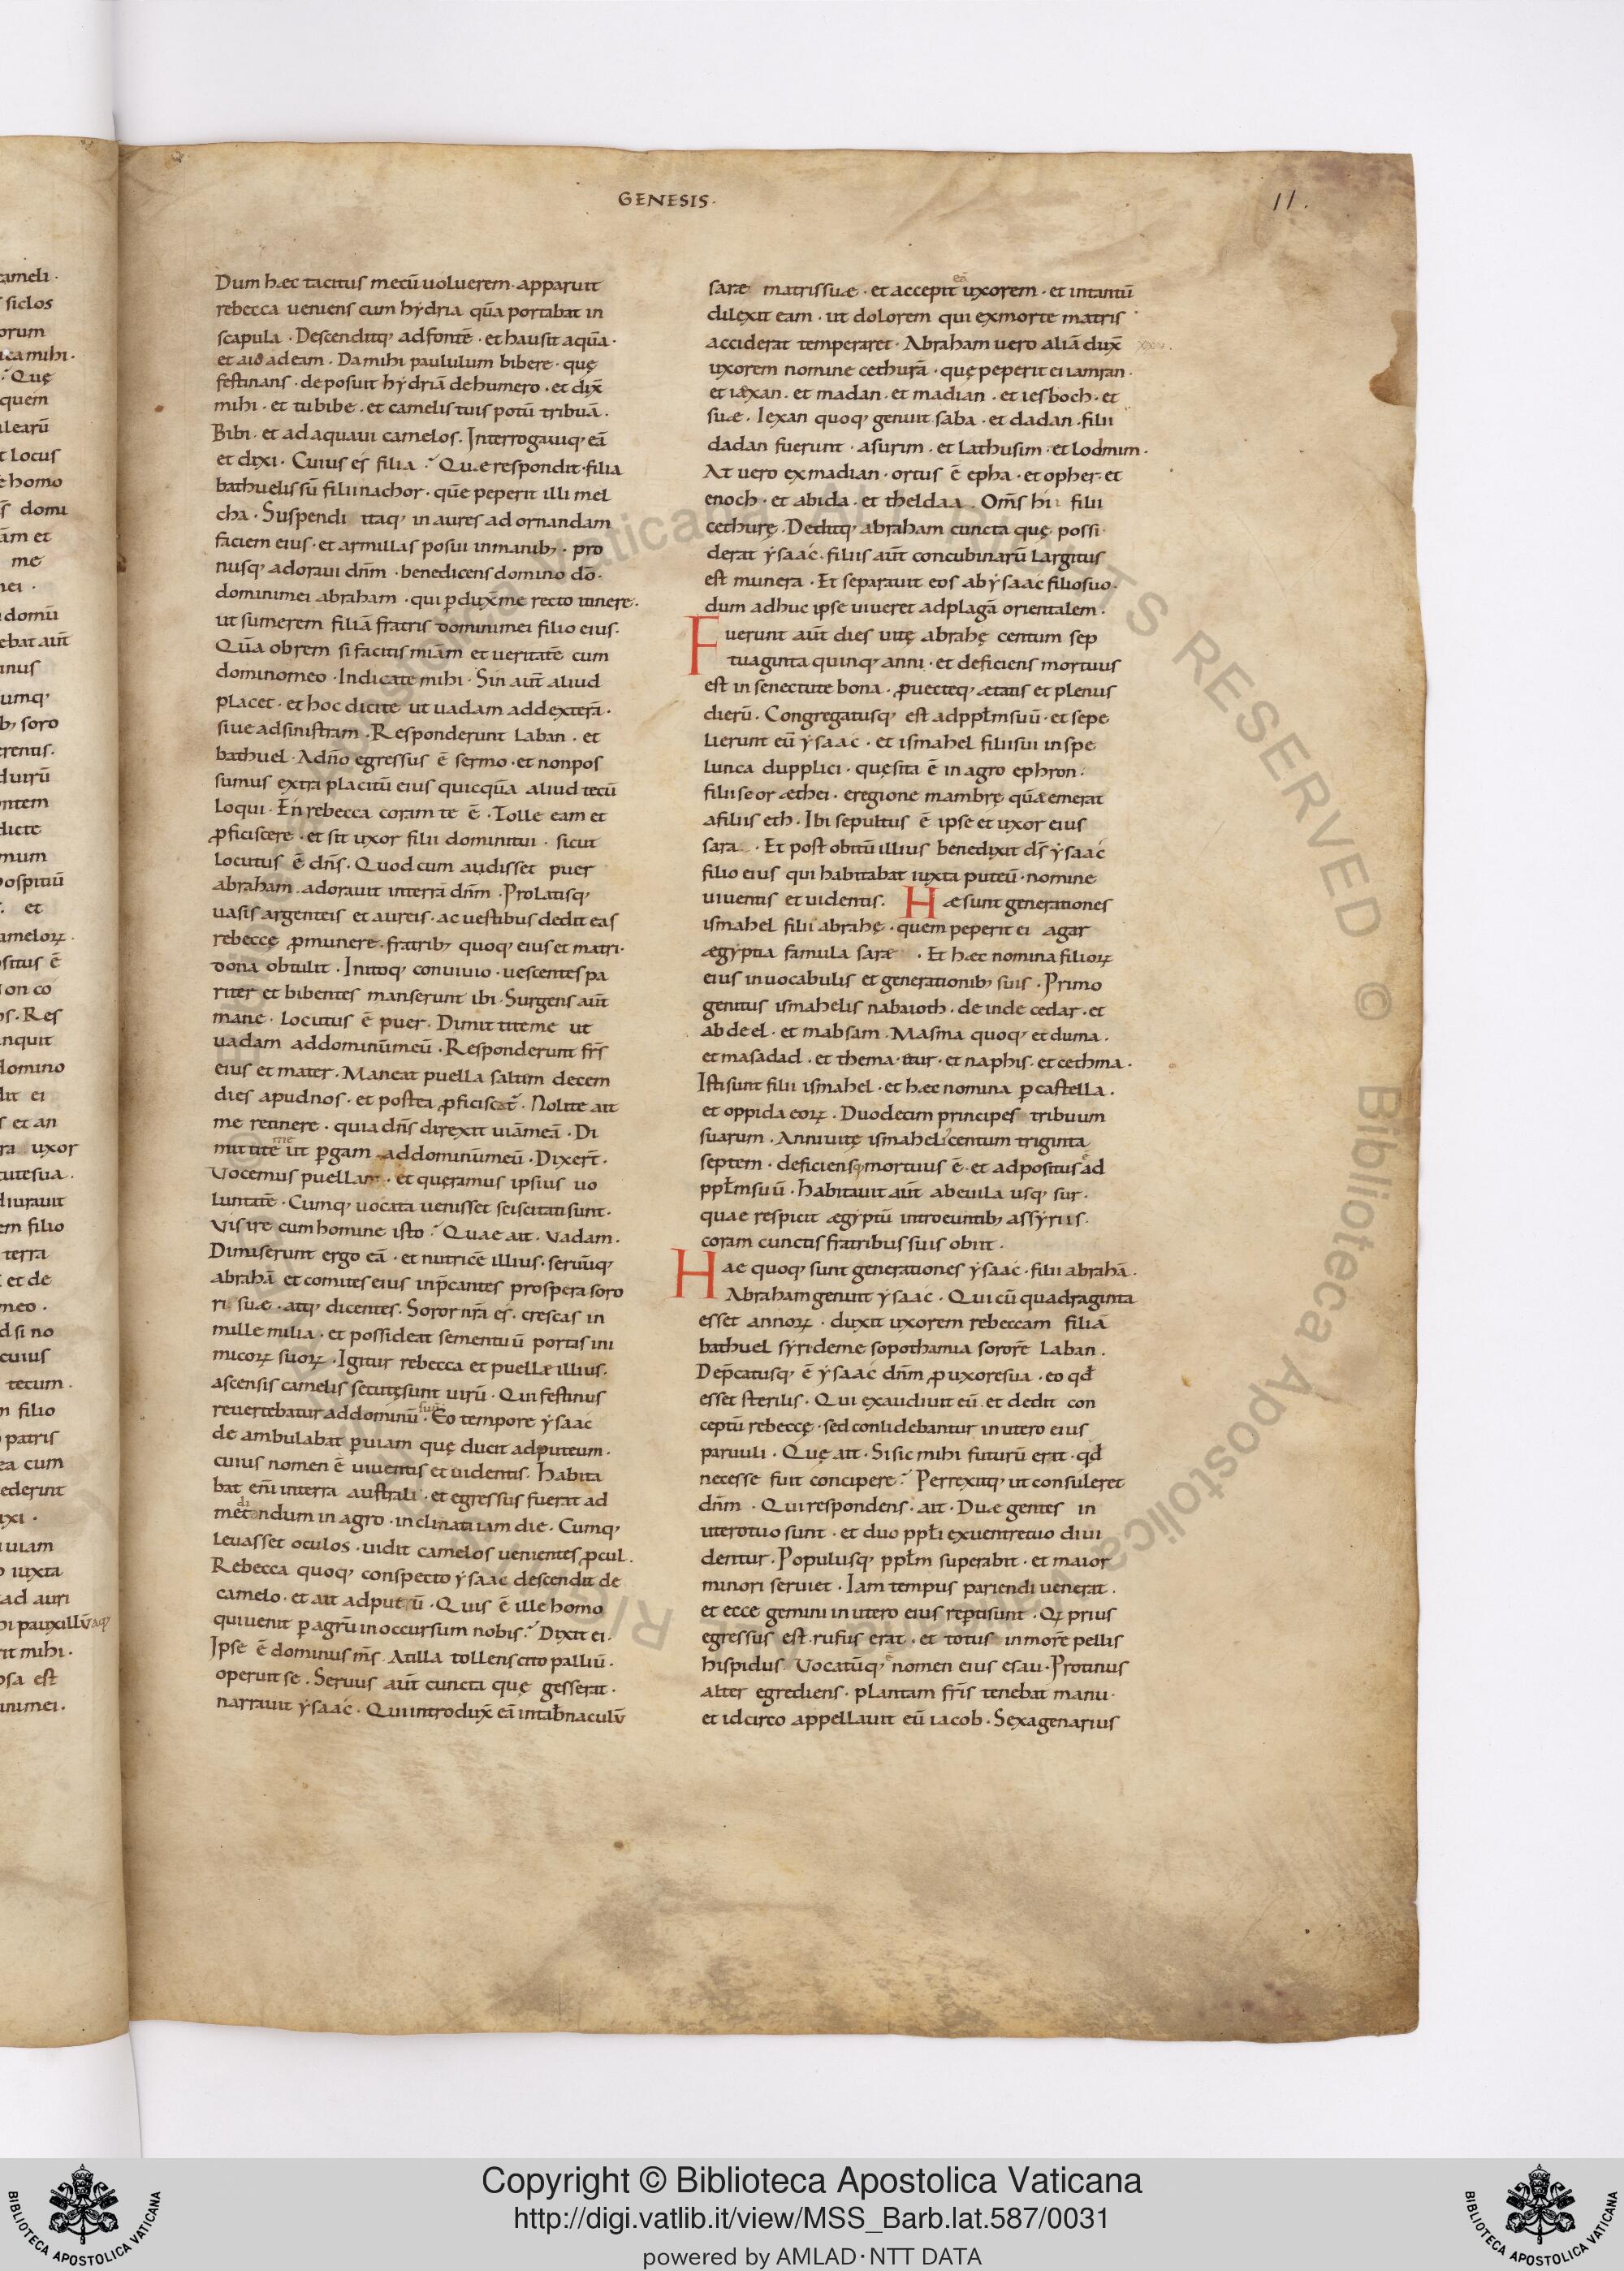 GENESIS·
11.
Dum hæc tacitus mecū uoluerem · apparuit
rebecca ueniens cum hẏdria quā portabat in
scapula · Descenditq; ad fontē · et hausit aquā·
et aio ad eam · Da mihi paululum bibere · quę
festinans · deposuit hẏdriā de humero · et dix̄
mihi · et tu bibe · et camelis tuis potū tribuā·
Bibi · et adaquaui camelos · Interrogauiq; eā
et dixi · Cuius es filia? Quæ respondit · filia
bathuelis sū filii nachor · quē peperit illi mel
cha · Suspendi itaq; in aures ad ornandam
faciem eius · et armillas posui in manib; · pro
nusq; adoraui dn̄m · benedicens domino dō·
domini mei abraham · qui pduxᷓ me recto itinere·
ut sumerem filiā fratris domini mei filio eius·
Quā obrem si facitis miām et ueritatē cum
domino meo · Indicate mihi · Sin aut̄ aliud
placet · et hoc dicite ut uadam ad dexterā·
siue ad sinistram · Responderunt laban · et
bathuel · A dn̄o egressus ē sermo · et non pos
sumus extra placitū eius quicquā aliud tecū
loqui · En rebecca coram te ē · Tolle eam et
ꝓficiscere · et sit uxor filii domini tui · sicut
locutus ē dn̄s · Quod cum audisset puer
abraham · adorauit in terrā dn̄m · Prolatisq;
uasis argenteis et aureis · ac uestibus dedit eas
rebeccę ꝓ munere · fratrib; quoq; eius et matri·
dona obtulit · Initoq; conuiuio · uescentes pa
riter et bibentes manserunt ibi · Surgens aut̄
mane · locutus ē puer · Dimittite me ut
uadam ad dominū meū · Responderunt frs̄
eius et mater · Maneat puella saltim decem
dies apud nos · et postea ꝓficiscat̄ · Nolite ait
me retinere · quia dn̄s direxit uiā meā · Di
mittite me ut pgam ad dominū meū · Dixert̄·
Vocemus puellam · et queramus ipsius uo
luntatē · Cumq; uocata uenisset sciscitati sunt·
Vis ire cum homine isto? Quae ait · Vadam·
Dimiserunt ergo eā · et nutricē illius · seruūq;
abrahā et comites eius inp̄cantes prospera soro
ri suæ · atq; dicentes · Soror nr̄a es · crescas in
mille milia · et possideat semen tuū portas ini
micoꝝ suoꝝ · Igitur rebecca et puellæ illius·
ascensis camelis secutę sunt uirū · Qui festinus
reuertebatur ad dominū suū · Eo tempore ẏsaac
de ambulabat p uiam quę ducit ad puteum·
cuius nomen ē uiuentis et uidentis · Habita
bat eni in terra australi · et egressus fuerat ad
meditandum in agro · inclinati iam die · Cumq;
leuasset oculos · uidit camelos uenientes ꝓcul·
Rebecca quoq; conspecto ẏsaac descendit de
camelo · et ait ad puerū · Quis ē ille homo
qui uenit p agrū in occursum nobis? Dixit ei·
Ipse ē dominus ms̄ · At illa tollens cito palliū·
operuit se · Seruus aut̄ cuncta quę gesserat·
narrauit ẏsaac · Qui introdux̄ eā in tab̄naculū
saræ matris suæ · et accepit eā uxorem · et in tantū
dilexit eam · ut dolorem qui ex morte matris
acciderat temperaret · Abraham uero aliā dux̄
uxorem nomine cethurā · quę peperit ei iamran·
et iæxan · et madan · et madian · et iesboch · et
suæ · Iexan quoq; genuit saba · et dadan · filii
dadan fuerunt · asurim · et lathusim · et lodmim·
At uero ex madian · ortus ē epha · et opher · et
enoch · et abida · et theldaa · Om̄s hi filii
cethurę · Deditq; abraham cuncta quę possi
derat ẏsaac · filiis aut̄ concubinarū largitus
est munera · Et separauit eos ab ẏsaac filio suo·
dum adhuc ipse uiueret ad plagā orientalem·
Fuerunt aut̄ dies uitę abrahę centum sep
tuaginta quinq; anni · et deficiens mortuus
est in senectute bona · ꝓuecteq; ætatis et plenus
dierū · Congregatusq; est ad ppłm suū · et sepe
lierunt eū ẏsaac · et ismahel filii sui in spe
lunca dupplici · quę sita ē in agro ephron·
filii seor æthei · e regione mambrę quā emerat
a filiis eth · Ibi sepultus ē ipse et uxor eius
sara · Et post obitū illius benedixit ds̄ ẏsaac
filio eius qui habitabat iuxta puteū · nomine
uiuentis et uidentis · Hæ sunt generationes
ismahel filii abrahę · quem peperit ei agar
ægẏptia famula saræ · Et hæc nomina filioꝝ
eius in uocabulis et generationib; suis · Primo
genitus ismahelis nabaioth · deinde cedar · et
abdeel · et mabsam · Masma quoq; et duma·
et masadad · et thema · itur · et naphis · et cethma·
Isti sunt filii ismahel · et hæc nomina p castella·
et oppida eoꝝ · Duodecim principes tribuum
suarum · Anni uitę ismaheli centum triginta
septem · deficiensq; mortuus ē · et adpositus ē ad
ppłm suū · Habitauit aut̄ ab euila usq; sur·
quae respicit ægẏptū introeuntib; assẏrius·
coram cunctis fratribus suis obiit·
Hae quoq; sunt generationes ẏsaac · filii abrahā·
Abraham genuit ẏsaac · Qui cū quadraginta
esset annoꝝ · duxit uxorem rebeccam filiā
bathuel sẏri de mesopothamia sororē laban·
Dep̄catusq; ē ẏsaac dn̄m ꝓ uxore sua · eo qđ
esset sterilis · Qui exaudiuit eū · et dedit con
ceptū rebeccę · sed conlidebantur in utero eius
paruuli · Quę ait · Si sic mihi futurū erat · qđ
necesse fuit concipere? Perrexitq; ut consuleret
dn̄m · Qui respondens · ait · Duæ gentes in
utero tuo sunt · et duo ppłi ex uentre tuo diui
dentur · Populusq; ppłm superabit · et maior
minori seruiet · Iam tempus pariendi uenerat·
et ecce gemini in utero eius repti sunt · Qꝝ prius
egressus est · rufus erat · et totus in morē pellis
hispidus · Vocatūq; ē nomen eius esau · Protinus
alter egrediens · plantam fr̄is tenebat manu·
et idcirco appellauit eū iacob · Sexagenarius
Copyright © Biblioteca Apostolica Vaticana
http://digi.vatlib.it/view/MSS_Barb.lat.587/0031
powered by AMLAD·NTT DATA
BIBLIOTECA APOSTOLICA VATICANA
BIBLIOTECA APOSTOLICA VATICANA